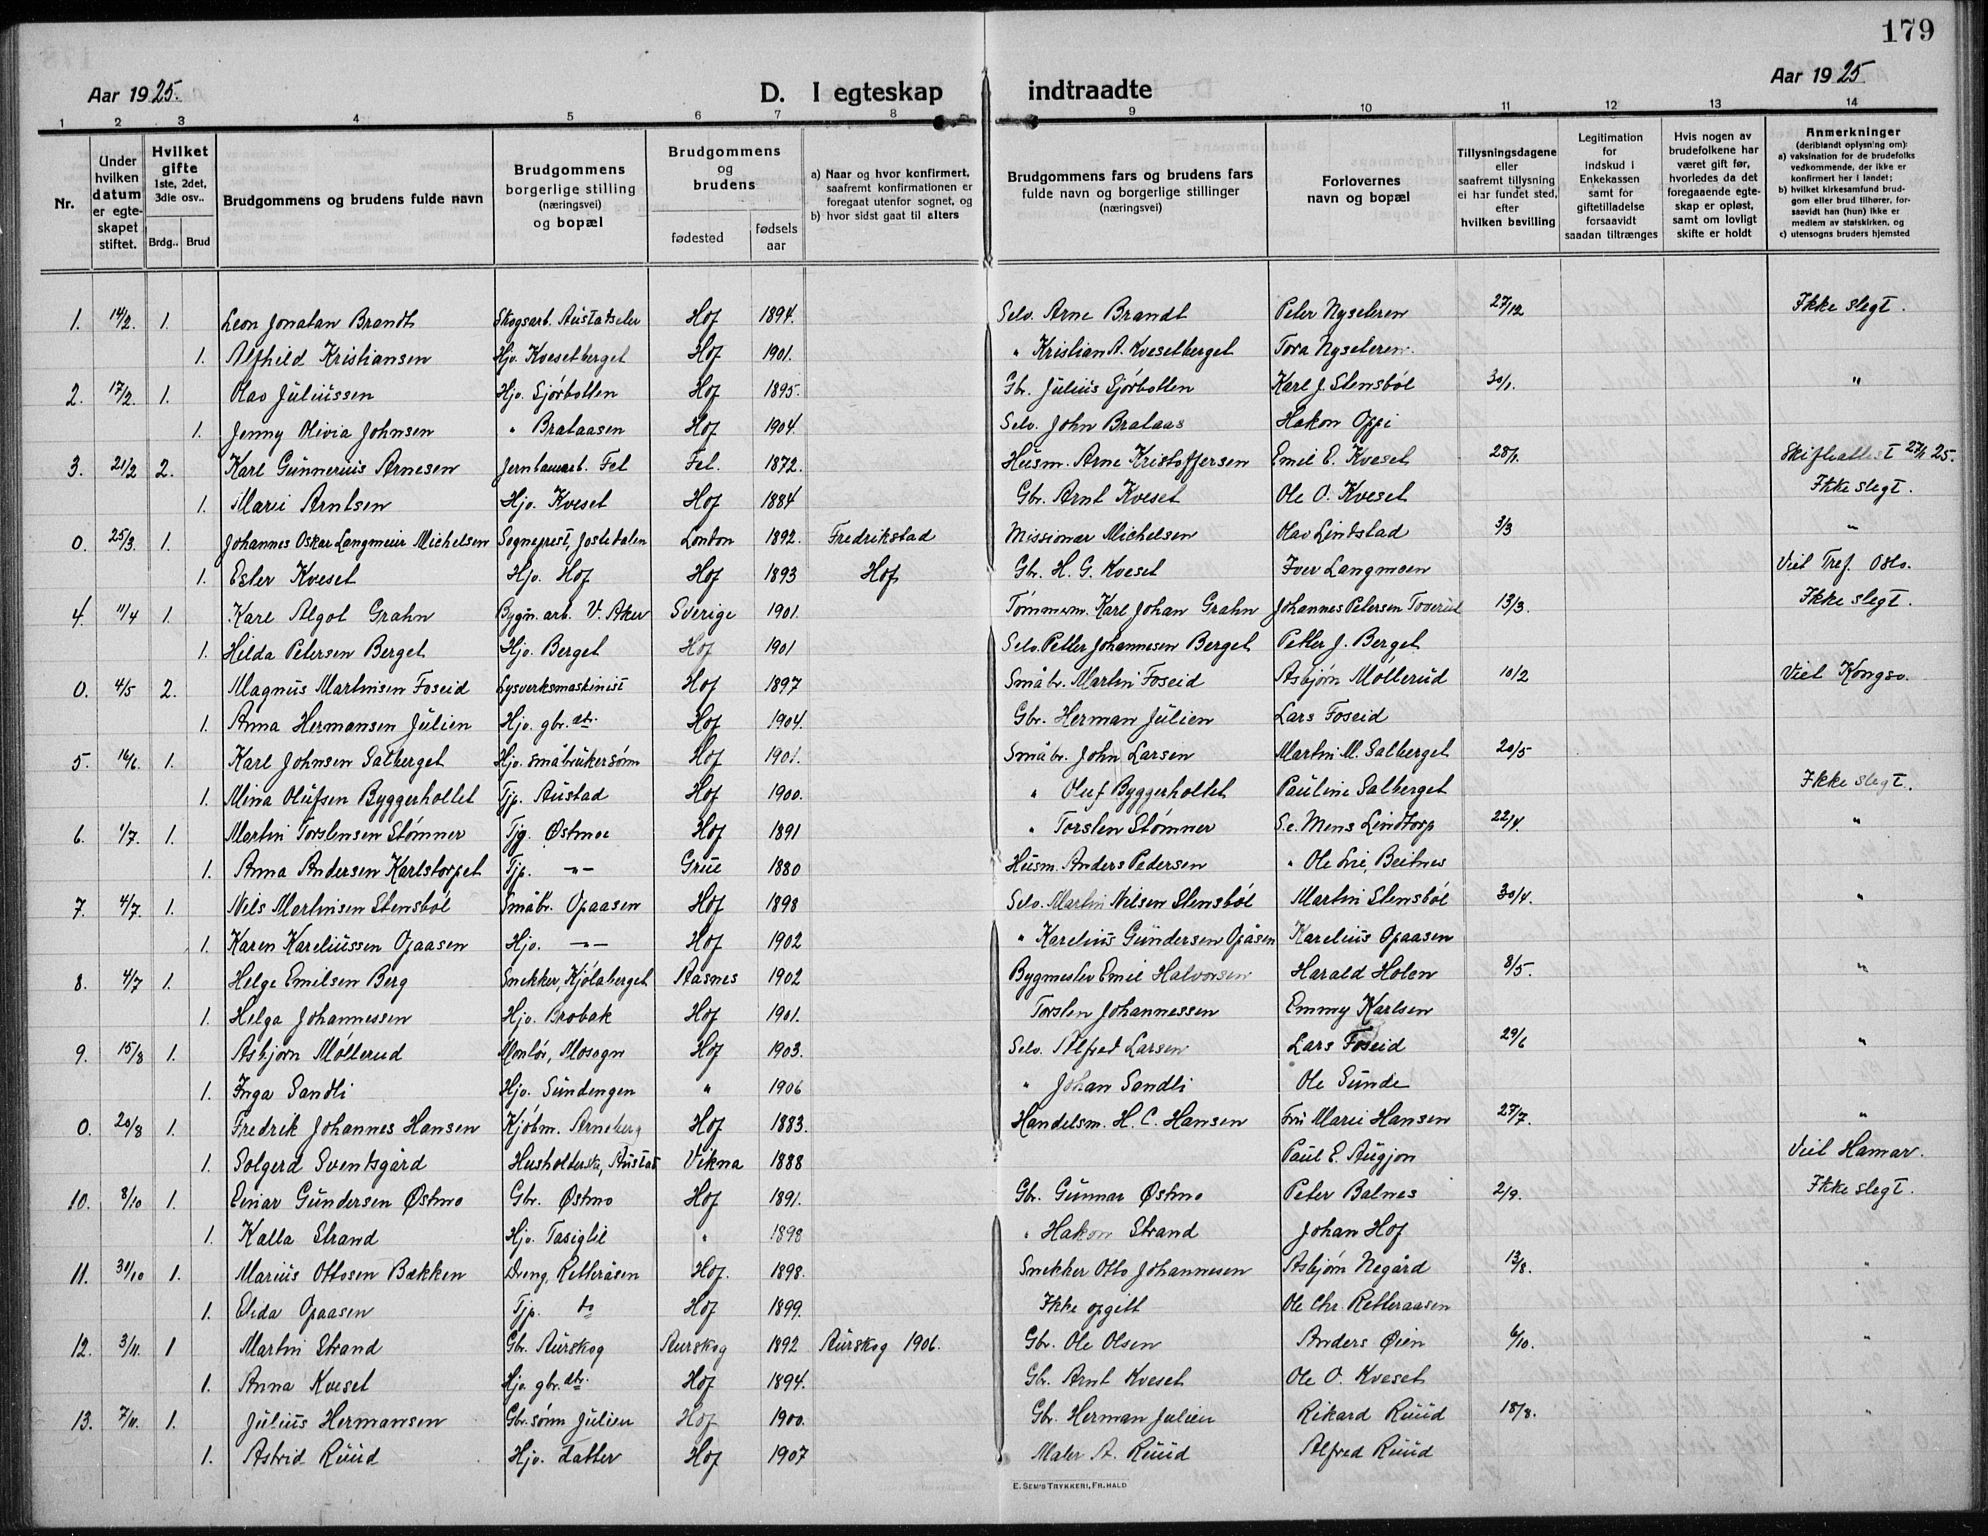 179
Aar 1925. D. I egteskap indtraadte Aar 1925
1 2 3 4 5 6 7 8 9 10 11 12 13 14
Nr.
Under hvilken datum er egteskapet stiftet.
Hvilket gifte 1ste, 2det, 3dle osv.. Brdg.. Brud
Brudgommens og brudens fulde navn
Brudgommens borgerlige stilling (næringsvei) og bopæl
Brudgommens og brudens fødested fødsels aar
a) Naar og hvor konfirmert, saafremt konfirmationen er foregaat utenfor sognet, og b) hvor sidst gaat til alters
Brudgommens fars og brudens fars fulde navn og borgerlige stillinger (næringsvei)
Forlovernes navn og bopæl
Tillysningsdagene eller saafremt tillysning ei har fundet sted, efter hvilken bevilling
Legitimation for indskud i Enkekassen samt for giftetilladelse forsaavidt saadan tiltrænges
Hvis nogen av brudefolkene har været gift før, hvorledes da det foregaaende egteskap er opløst, samt om lovligt skifte er holdt
Anmerkninger (deriblandt oplysning om): a) vaksination for de brudefolks vedkommende, der ikke er konfirmert her i landet; b) hvilket kirkesamfund brudgom eller brud tilhører, forsaavidt han (hun) ikke er medlem av statskirken, og c) utensogns bruders hjemsted
1. 14/2. 1. Leon Jonatan Brandt Skogsarb. Austadseter Hof 1894. Selv. Arne Brandt Peter Nyseteren 27/12 Ikke slegt.
1. Alfhild Kristiansen Hjv. Kvesetberget Hof 1901. " Kristian A. Kvesetberget Tora Nyseteren.
2. 17/2. 1. Olav Juliussen Hjv. Sjørbotten Hof 1895. Gbr. Julius Sjørbotten Karl J. Stensbøl 30/1. "
1. Jenny Olivia Johnsen " Brataasen Hof 1904. Selv. John Brataas Hakon Oppi
3. 21/2 2. Karl Gunnerius Arnesen Jernbanearb. Fet Fet. 1872. Husm. Arne Kristoffersen Emil E. Kveset 28/1. Skifteattest 27/1 25.
1. Marie Arntsen Hjv. Kveset Hof 1884 Gbr. Arnt Kveset Ole O. Kveset Ikke slegt.
0. 25/3. 1. Johannes Oskar Langmeier Michelsen Sogneprest, Jostedalen London 1892. Fredrikstad Missionær Michelsen Olav Lindstad 3/3 "
1. Ester Kveset Hjv. Hof Hof 1893 Hof Gbr. H. G. Kveset Iver Langmoen Viet Tref. Oslo.
4. 11/4 1. Karl Algot Grahn Bygn. arb. V. Aker Sverige 1901. Tømmerm. Karl Johan Grahn Johannes Petersen Toverud 13/3. Ikke slegt.
1. Hilda Petersen Berget Hjv. Berget Hof 1901 Selv. Petter Johannesen Berget Petter J. Berget
0. 4/5 2. Magnus Martinsen Foseid Lysverksmaskinist Hof 1897 Småbr. Martin Foseid Asbjørn Møllerud 10/2 Viet Kongsv.
1. Anna Hermansen Julien Hjv. gbr. dtr. Hof 1904. Gbr. Herman Julien Lars Foseid
5. 16/6. 1. Karl Johnsen Salberget Hjv. småbrukersønn Hof 1901. Småbr. John Larsen Martin M. Salberget 20/5
1. Mina Olufsen Byggerholtet Tjp. Austad Hof 1900. " Oluf Byggerholtet Pauline Salberget Ikke slegt.
6. 1/7. 1. Martin Torstensen Stømner Tjg. Østmoe Hof 1891 " Torsten Stømner S.e. Mens Lindtorp 22/4. "
1. Anna Andersen Karlstorpet Tjp. —"— Grue 1880 Husm. Anders Pedersen " Ole Lie, Beitnes
7. 4/7. 1. Nils Martinsen Stensbøl Småbr. Opaasen Hof 1898 Selv. Martin Nilsen Stensbøl Martin Stensbøl 30/4. "
1. Karen Kareliussen Opaasen Hjv. —"— Hof 1902 " Karelius Gundersen Opåsen Karelius Opaasen
8. 4/7 1. Helge Emilsen Berg Snekker, Kjølaberget Aasnes 1902 Bygmester Emil Halvorsen Harald Holen 8/5. "
1. Helga Johannessen Hjv. Brobak Hof 1901. Torsten Johannessen Emmy Karlsen
9. 15/8 1. Asbjørn Møllerud Montør, Mosogn Hof 1903. Selv. Alfred Larsen Lars Foseid 29/6 "
1. Inga Sandli Hjv. Sundengen " 1906 " Johan Sandli Ole Sunde
0. 20/8 1. Fredrik Johannes Hansen Kjøbm. Arneberg Hof 1883. Handelsm. H. C. Hansen Fru Marie Hansen 27/7. "
1. Solgerd Sventsgård Husholderske, Austad Vikna 1888 Paul E. Augjon Viet Hamar.
10. 8/10 1. Einar Gundersen Østmo Gbr. Østmo Hof 1891. Gbr. Gunnar Østmo Peter Balnes 2/9. Ikke slegt.
1. Kalla Strand Hjv. Tasiglie " 1898 " Hakon Strand Johan Hof
11. 31/10 1. Marius Ottosen Bækken Dreng, Retteråsen Hof. 1898. Snekker Otto Johannesen Asbjørn Negård 13/8. "
1. Elida Opaasen Tjp. do Hof 1899. Ikke opgitt Ole Chr. Retteraasen
12. 3/11. 1 Martin Strand Gbr. Aurskog Aurskog 1892 Aurskog 1906. Gbr. Ole Olsen Anders Øien 6/10. "
1. Anna Kveset Hjv. gbr. dtr. Hof 1894. Gbr. Arnt Kveset Ole O. Kveset
13. 7/11. 1. Julius Hermansen Gbr.sønn Julien Hof 1900. Gbr. Herman Julien Rikard Ruud 18/8. "
1. Astrid Ruud Hjv. datter Hof 1907 Maler A. Ruud Alfred Ruud
E. SEM'S TRYKKERI, FR.HALD